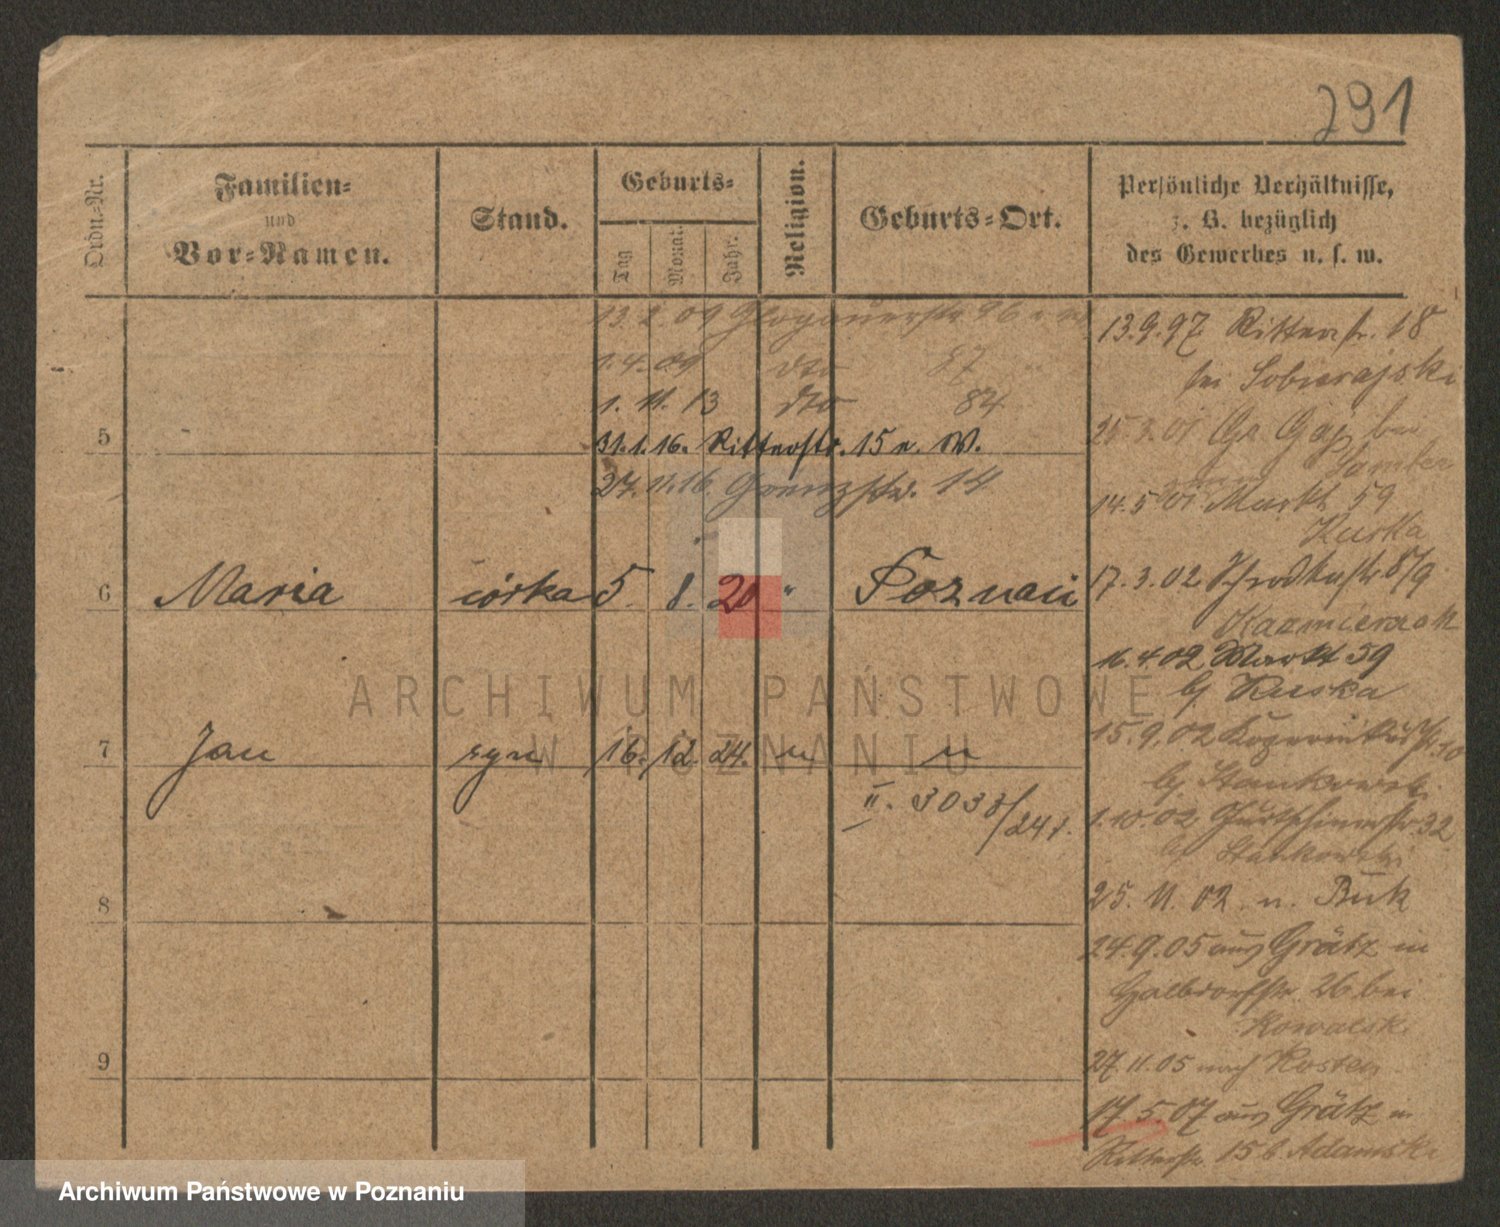 291
Ordn.-Nr.
Familien-
und
Vor-Namen.
Stand.
Geburts-
Tag
Monat.
Jahr.
Religion.
Geburts-Ort.
Persönliche Verhältnisse,
z. B. bezüglich
des Gewerbes u. s. w.
13.2.09 Glogauerstr. 96
1.4.09 dto 87
1. 11. 13 dto 84
5
31.1.16. Ritterstr. 15 W.
27.11.16. Grenzstr. 14
6 Maria córka 5. 8. 20 " Poznań
7 Jan syn 16. 12. 24. " "
II. 3033/24 r.
8
9
13.9.97 Ritterstr. 18
bei Sobierajski
25.3.01 Gr. Gaj bei
Samter
14.5 01 Markt 59
Kuska
17.3.02 Schrodkastr 8/9
Kazmierczak
16.4.02 Markt 59
b/ Kuska
15.9.02
b/ Stankowski
1.10.02 32
b/
25. 11. 02 n. Buk
24.9.05 aus Grätz in
Halbdorfstr. 26 bei
Kowalski
27.11.05 nach Kosten
17.5.07 aus Grätz in
Ritterstr 15 b Adamski
ARCHIWUM PAŃSTWOWE
W POZNANIU
Archiwum Państwowe w Poznaniu